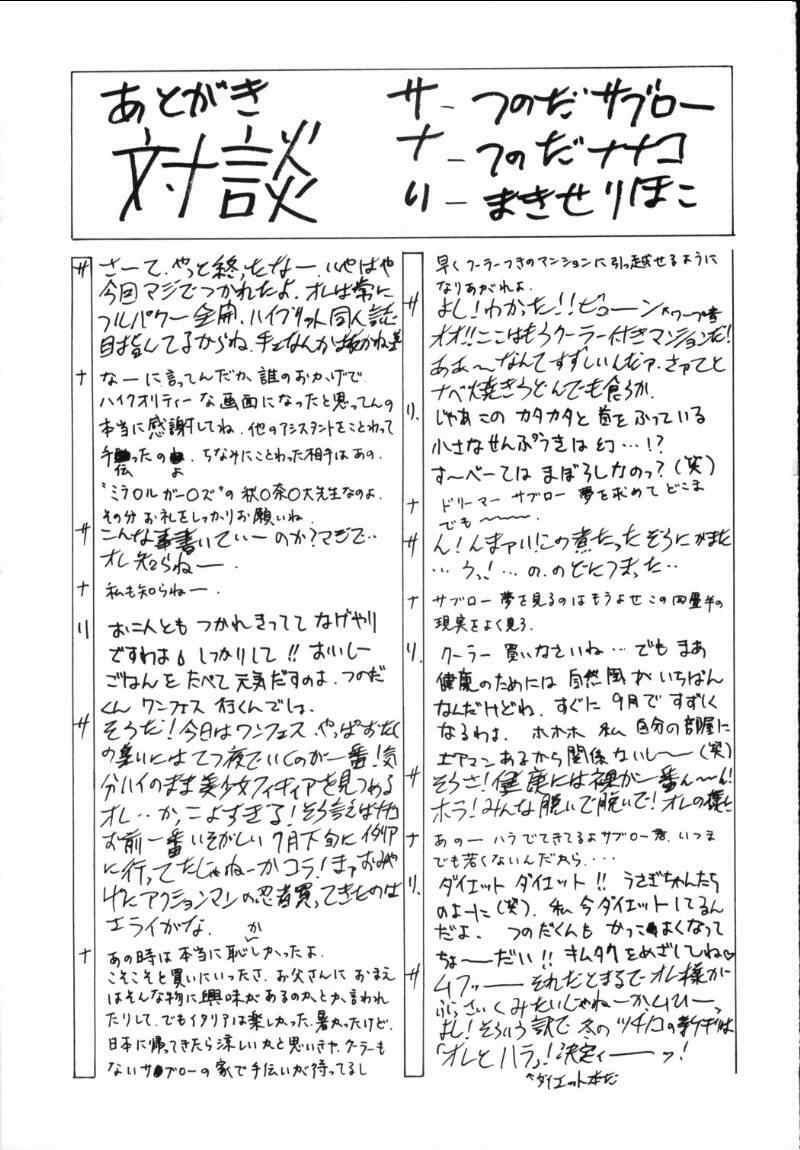 あとがき
対談
サ－つのだサブロー
ナ－つのだナナコ
り－まきせりほこ
サ さーて、やっと終ったなー、いやはや
今回マジでつかれたよ、オレは常に
フルパワー全開、ハイブリット同人誌
目指してるからね、手〼なんかは抜かねェ
ナ なーに言ってんだか、誰のおかげで
ハイクオリティーな画面になったと思ってんの
本当に感謝してね、他のアシスタントをことわって
手伝ったのよ、ちなみにことわった相手はあの、
"ミラ〇ルガー〇ズ"の秋〇奈〇大先生なのよ、
その分お礼をしっかりお願いね、
サ こんな事書いていーのか？マジで‥
オレ知らねー、
ナ 私も知らねー、
リ お二人とも つかれきってて なげやり
ですわよ しっかりして!! おいしー
ごはんをたべて元気だすのよ、つのだ
くん ワンフェス 行くんでしょ、
サ そうだ！今日はワンフェス、やっぱおたく
の集いにはてつ夜でいくのが一番！気
分ハイのまま美少女フィギュアを見つめる
オレ‥かっこよすぎる！そう言えばナナコ
お前一番いそがしい7月下旬にイタリア
に行ってたじゃねーかコラ！まァおみや
げにアクションマンの忍者買ってきたのは
エライがな、
ナ あの時は本当に恥かしかったよ、
こそこそと買いにいったさ、お父さんにおまえ
はそんな物に興味があるのかとか言われ
たりして、でもイタリアは楽しかった、暑かったけど、
日本に帰ってきたら涼しいかと思いきや、クーラーも
ないサブローの家で手伝いが待ってるし
早くクーラーつきのマンションに引っ越せるように
なりあがれよ、
サ よし！わかった!!ビューン ↖ワープ音
オオ!!ここはもうクーラー付きマンションだ！
ああ～なんてすずしいんだァ、さァてと
ナベ焼きうどんでも食うか、
リ、じゃあこの カタカタと首をふっている
小さなせんぷうきは幻…!?
す～べーては まぼろしなのっ？(笑)
ナ ドリーマー サブロー 夢を求めてどこま
でも～～～、
サ ん！んまァい！この煮たったぞうにがまた
‥うっ！…の、のどにつまった‥
ナ サブロー夢を見るのはもうよせこの四畳半の
現実をよく見ろ、
リ、クーラー買いなさいね…でも まあ
健康のためには自然風がいちばん
なんだけどね、すぐに9月ですずしく
なるわよ、ホホホ 私 自分の部屋に
エアマンあるから関係ないし～(笑)
サ そうさ！健康には裸が一番ん～ん！
ホラ！みんな脱いで脱いで！オレの様に
ナ あのー ハラでてきてるよサブロー君、いつま
でも若くないんだから、‥‥
リ、ダイエット ダイエット!! うさぎちゃんたち
のよーに(笑)、私今ダイエットしてるん
だよ、つのだくんも かっこよくなって
ちょ～だい!! キムタクをめざしてね♡
サ ムフッー それだとまるでオレ様が
ぶさいくみたいじゃねーかムヒーっ
よし！そういう訳で冬のツチノコの新刊は
「オレとハラ」！決定ィーーッ！
↖ダイエット本だ